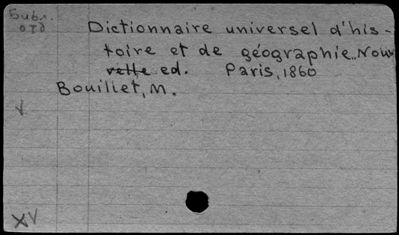 Dictionnaire universel d'his-
toire et de géographie. Nou
velle ed. Paris, 1860
Bouillet, M.
V
XV